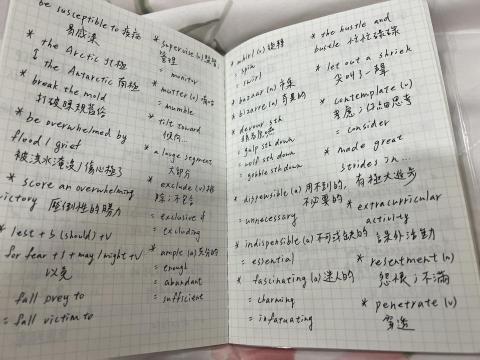 be susceptible to 疫病
易感染
* the Arctic 北極
↕ the Antarctic 南極
* break the mold
打破
* be overwhelmed by
flood / grief
被洪水淹沒 / 傷心極了
* score an overwhelming
victory 壓倒性的勝力
* lest + S (should) + V
for fear + S + may / might + V
以免
fall prey to
= fall victim to
* supervise (v)
管理
= monitor
* mutter (v)
= mumble
* tilt toward
傾向
* a large segment
大部分
* exclude (v) 排
除; 不包含
= exclusive of
= excluding
* ample (a) 充分的
= enough
= abundant
= sufficient
* whirl (v) 旋轉
= spin
= swirl
* bazaar (n) 市集
* bizarre (a) 奇異的
* devour sth
= gulp sth down
= wolf sth down
= gobble sth down
* dispensible (a) 用不到的,
不必要的
= unnecessary
* indispensible (a) 不可或缺的
= essential
* fascinating (a) 迷人的
= charming
= infatuating
* the hustle and
bustle
* let out a shriek
尖叫了一聲
* contemplate (v)
考慮; 仔細思考
= consider
* made great
strides in...
有極大進步
* extracurricular
activity
課外活動
* resentment (n)
怨恨; 不滿
* penetrate (v)
穿透